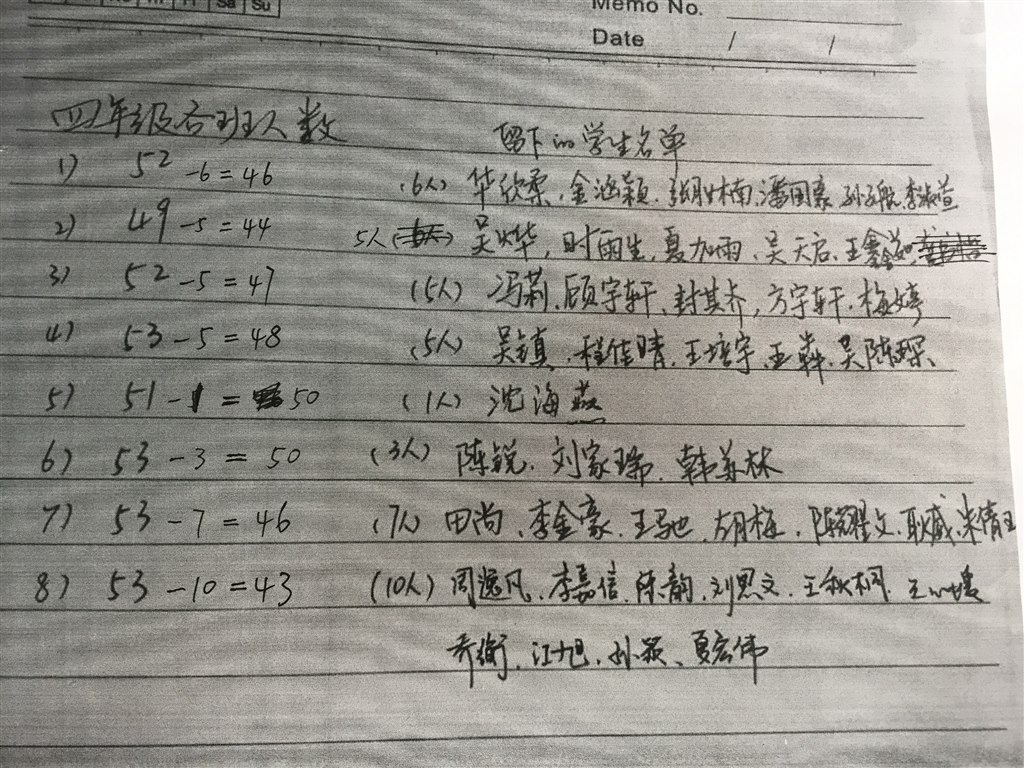 Fr Sa Su
Memo No.
Date / /
四年级各班人数 留下的学生名单
1) 52 -6 = 46 (6人) 华欣柔、金涵颖、潘国豪、李淑萱
2) 49 -5 = 44 5人 吴烨华, 时雨生, 夏加雨、吴天启、王鑫茹
3) 52 -5 = 47 (5人) 冯莉、顾宇轩、封其乔, 方宇轩、梅婷
4) 53 -5 = 48 (5人) 吴镇、程佳晴、王培宇、吴陈琛
5) 51 -1 = 50 (1人) 沈海燕
6) 53 -3 = 50 (3人) 陈锐、刘家瑞、韩苏林
7) 53 -7 = 46 (7人) 田尚、李金豪、王驰、胡梅、陈耀文、耿威、朱倩玉
8) 53 -10 = 43 (10人) 周逸凡、李嘉信、陈韵、刘思文、王秋桐
乔衡、江旭、孙颖、夏宏伟